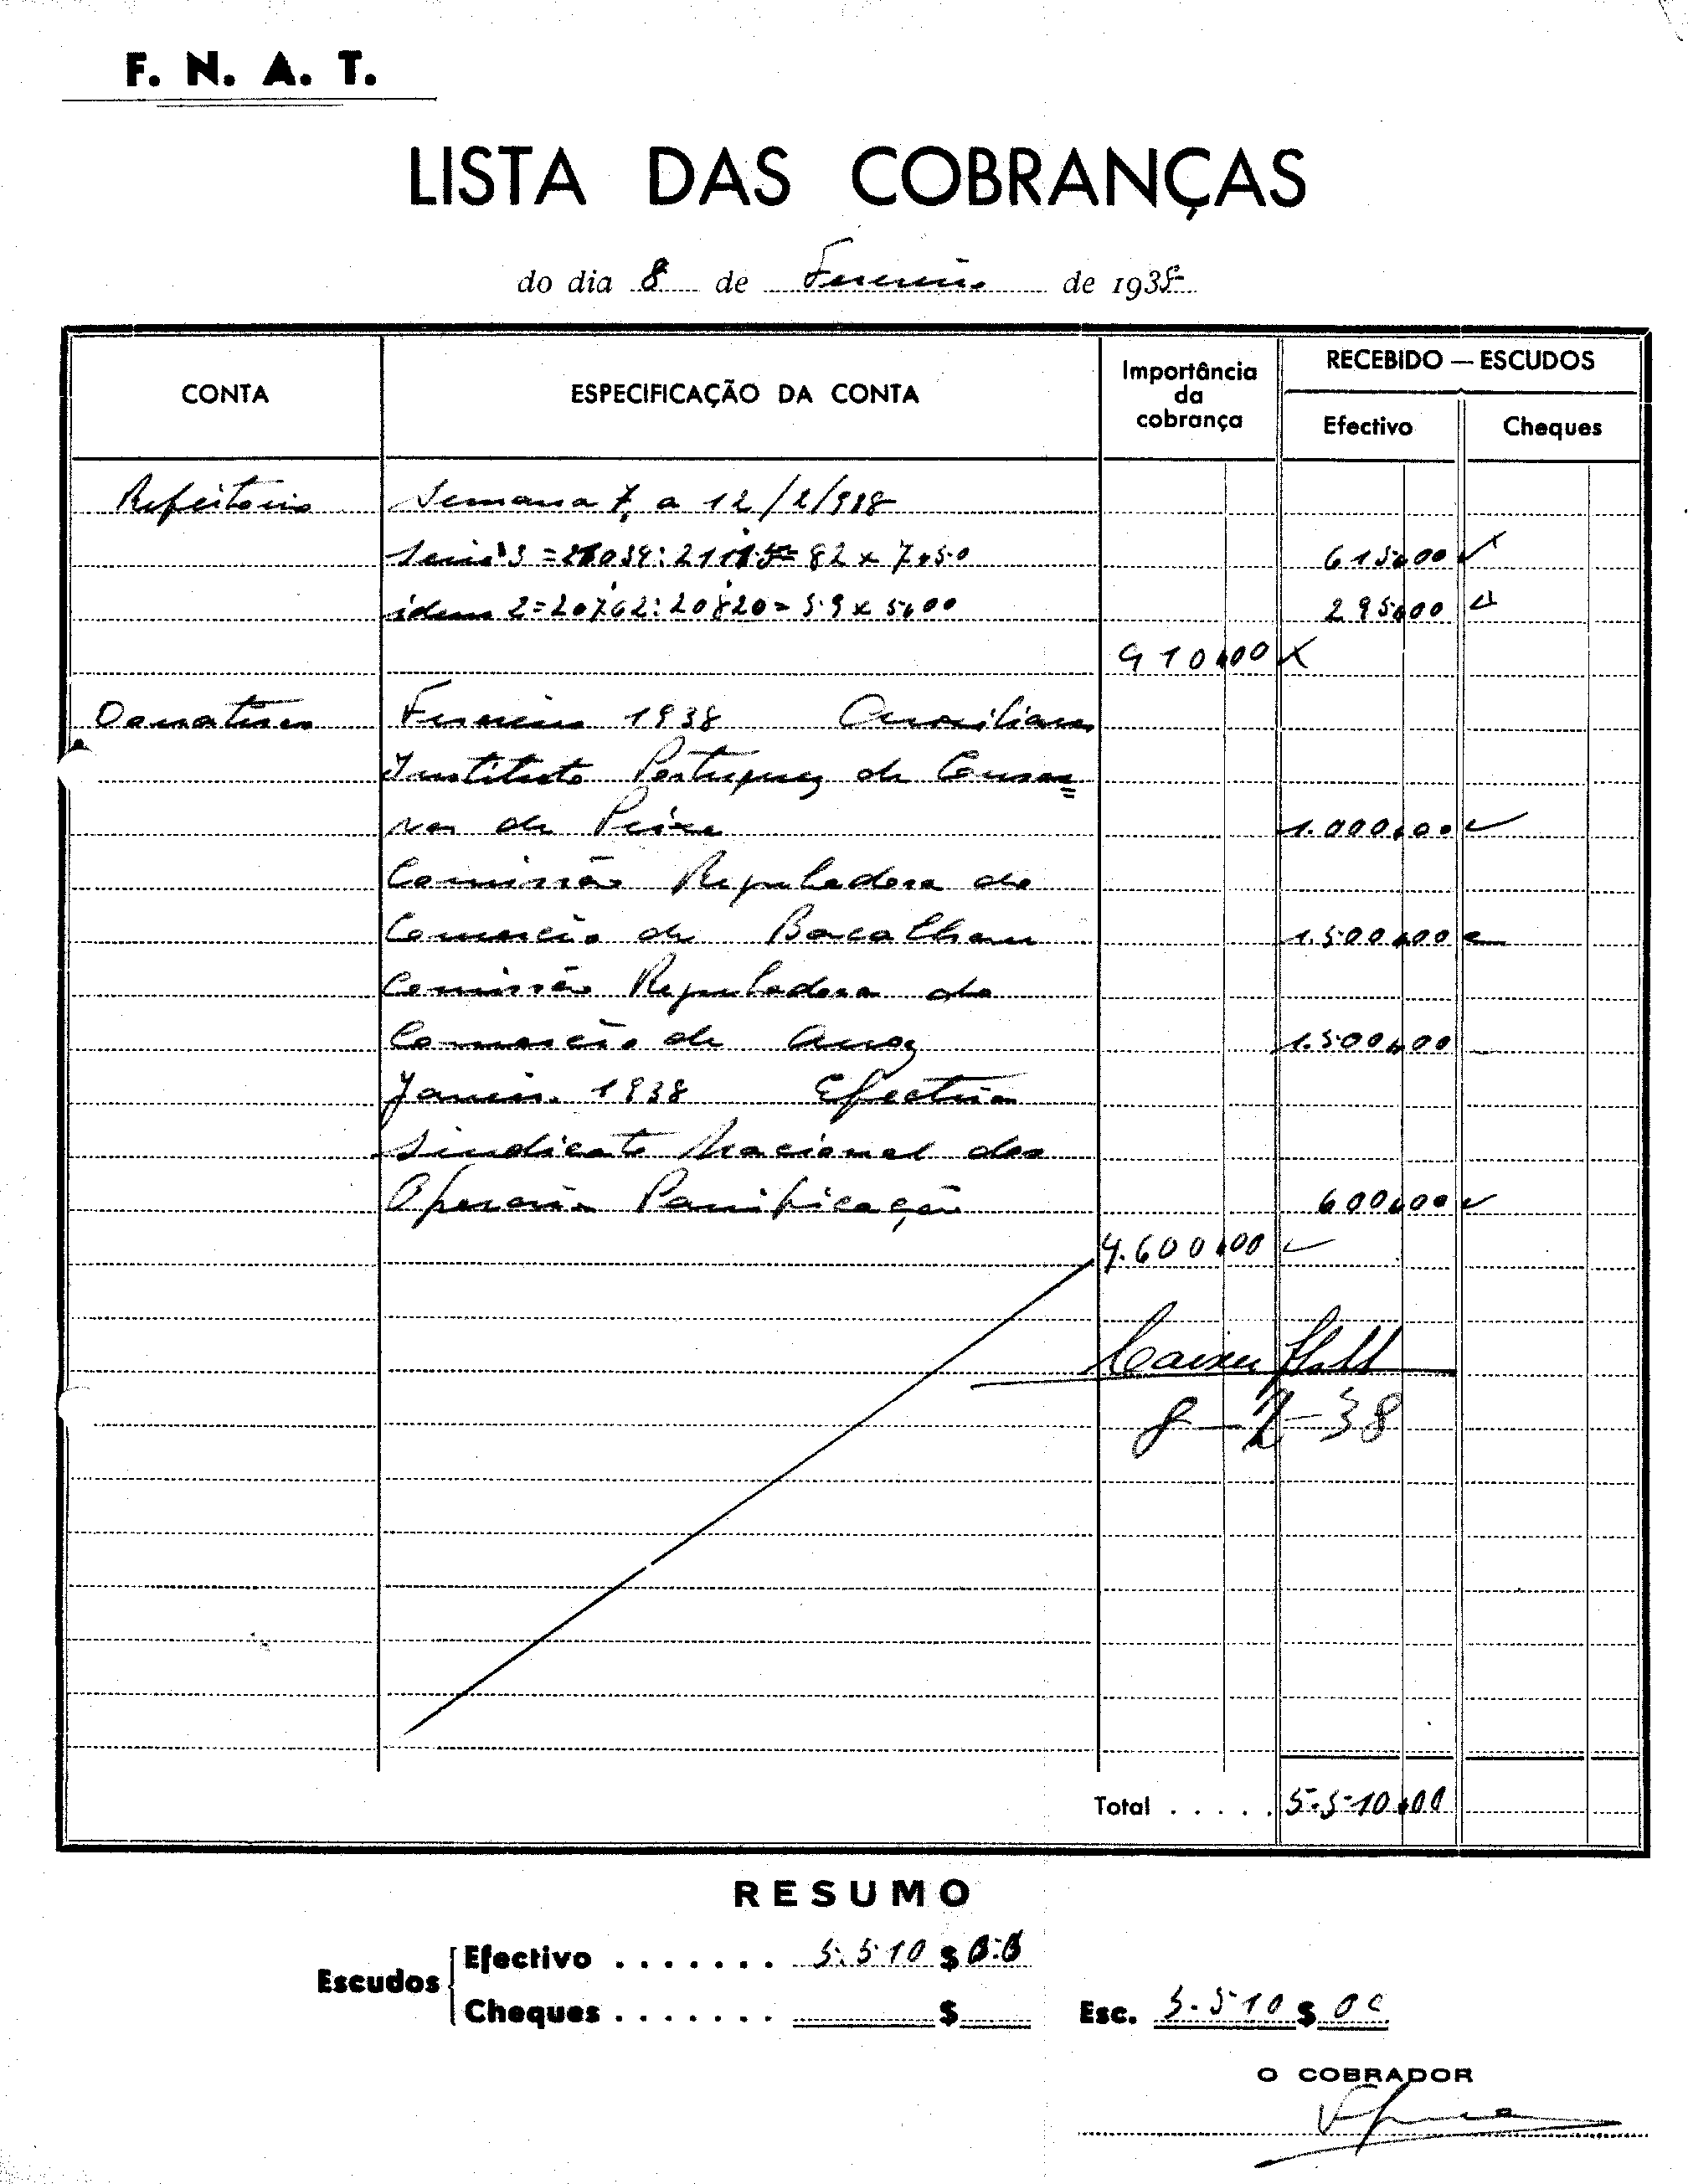 F. N. A. T.
LISTA DAS COBRANÇAS
do dia 8 de Fevereiro de 1938
CONTA ESPECIFICAÇÃO DA CONTA Importância da cobrança RECEBIDO — ESCUDOS
Efectivo Cheques
Refeitorio Semana 7, a 12/2/938
Serie 3 = 21034:21115 = 82 x 7,50 615,00
idem 2 = 20762:20820 = 59 x 5,00 295,00
910,00
Donativos Fevereiro 1938 Auxiliares
Instituto Portuguez de Conser=
vas de Peixe 1.000,00
Comissão Reguladora do
Comercio de Bacalhau 1.500,00
Comissão Reguladora do
Comercio de Arroz 1.500,00
Janeiro 1938 Efectivos
Sindicato Nacional dos
Operarios Panificação 600,00
4.600,00
Caixa
8-2-38
Total . . . . . 5.510,00
RESUMO
Escudos Efectivo . . . . . . . 5.510 $ 00
Cheques . . . . . . . $
Esc. 5.510 $ 00
O COBRADOR